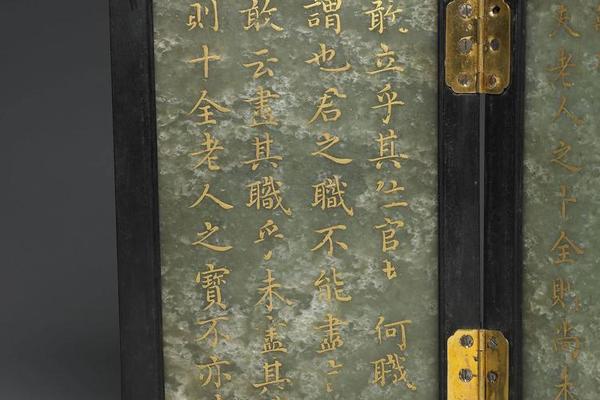 老人之十全則尚未
敢立乎其官何職
謂也君之職不能盡
敢云盡其職乎未盡其
則十全老人之寶不亦